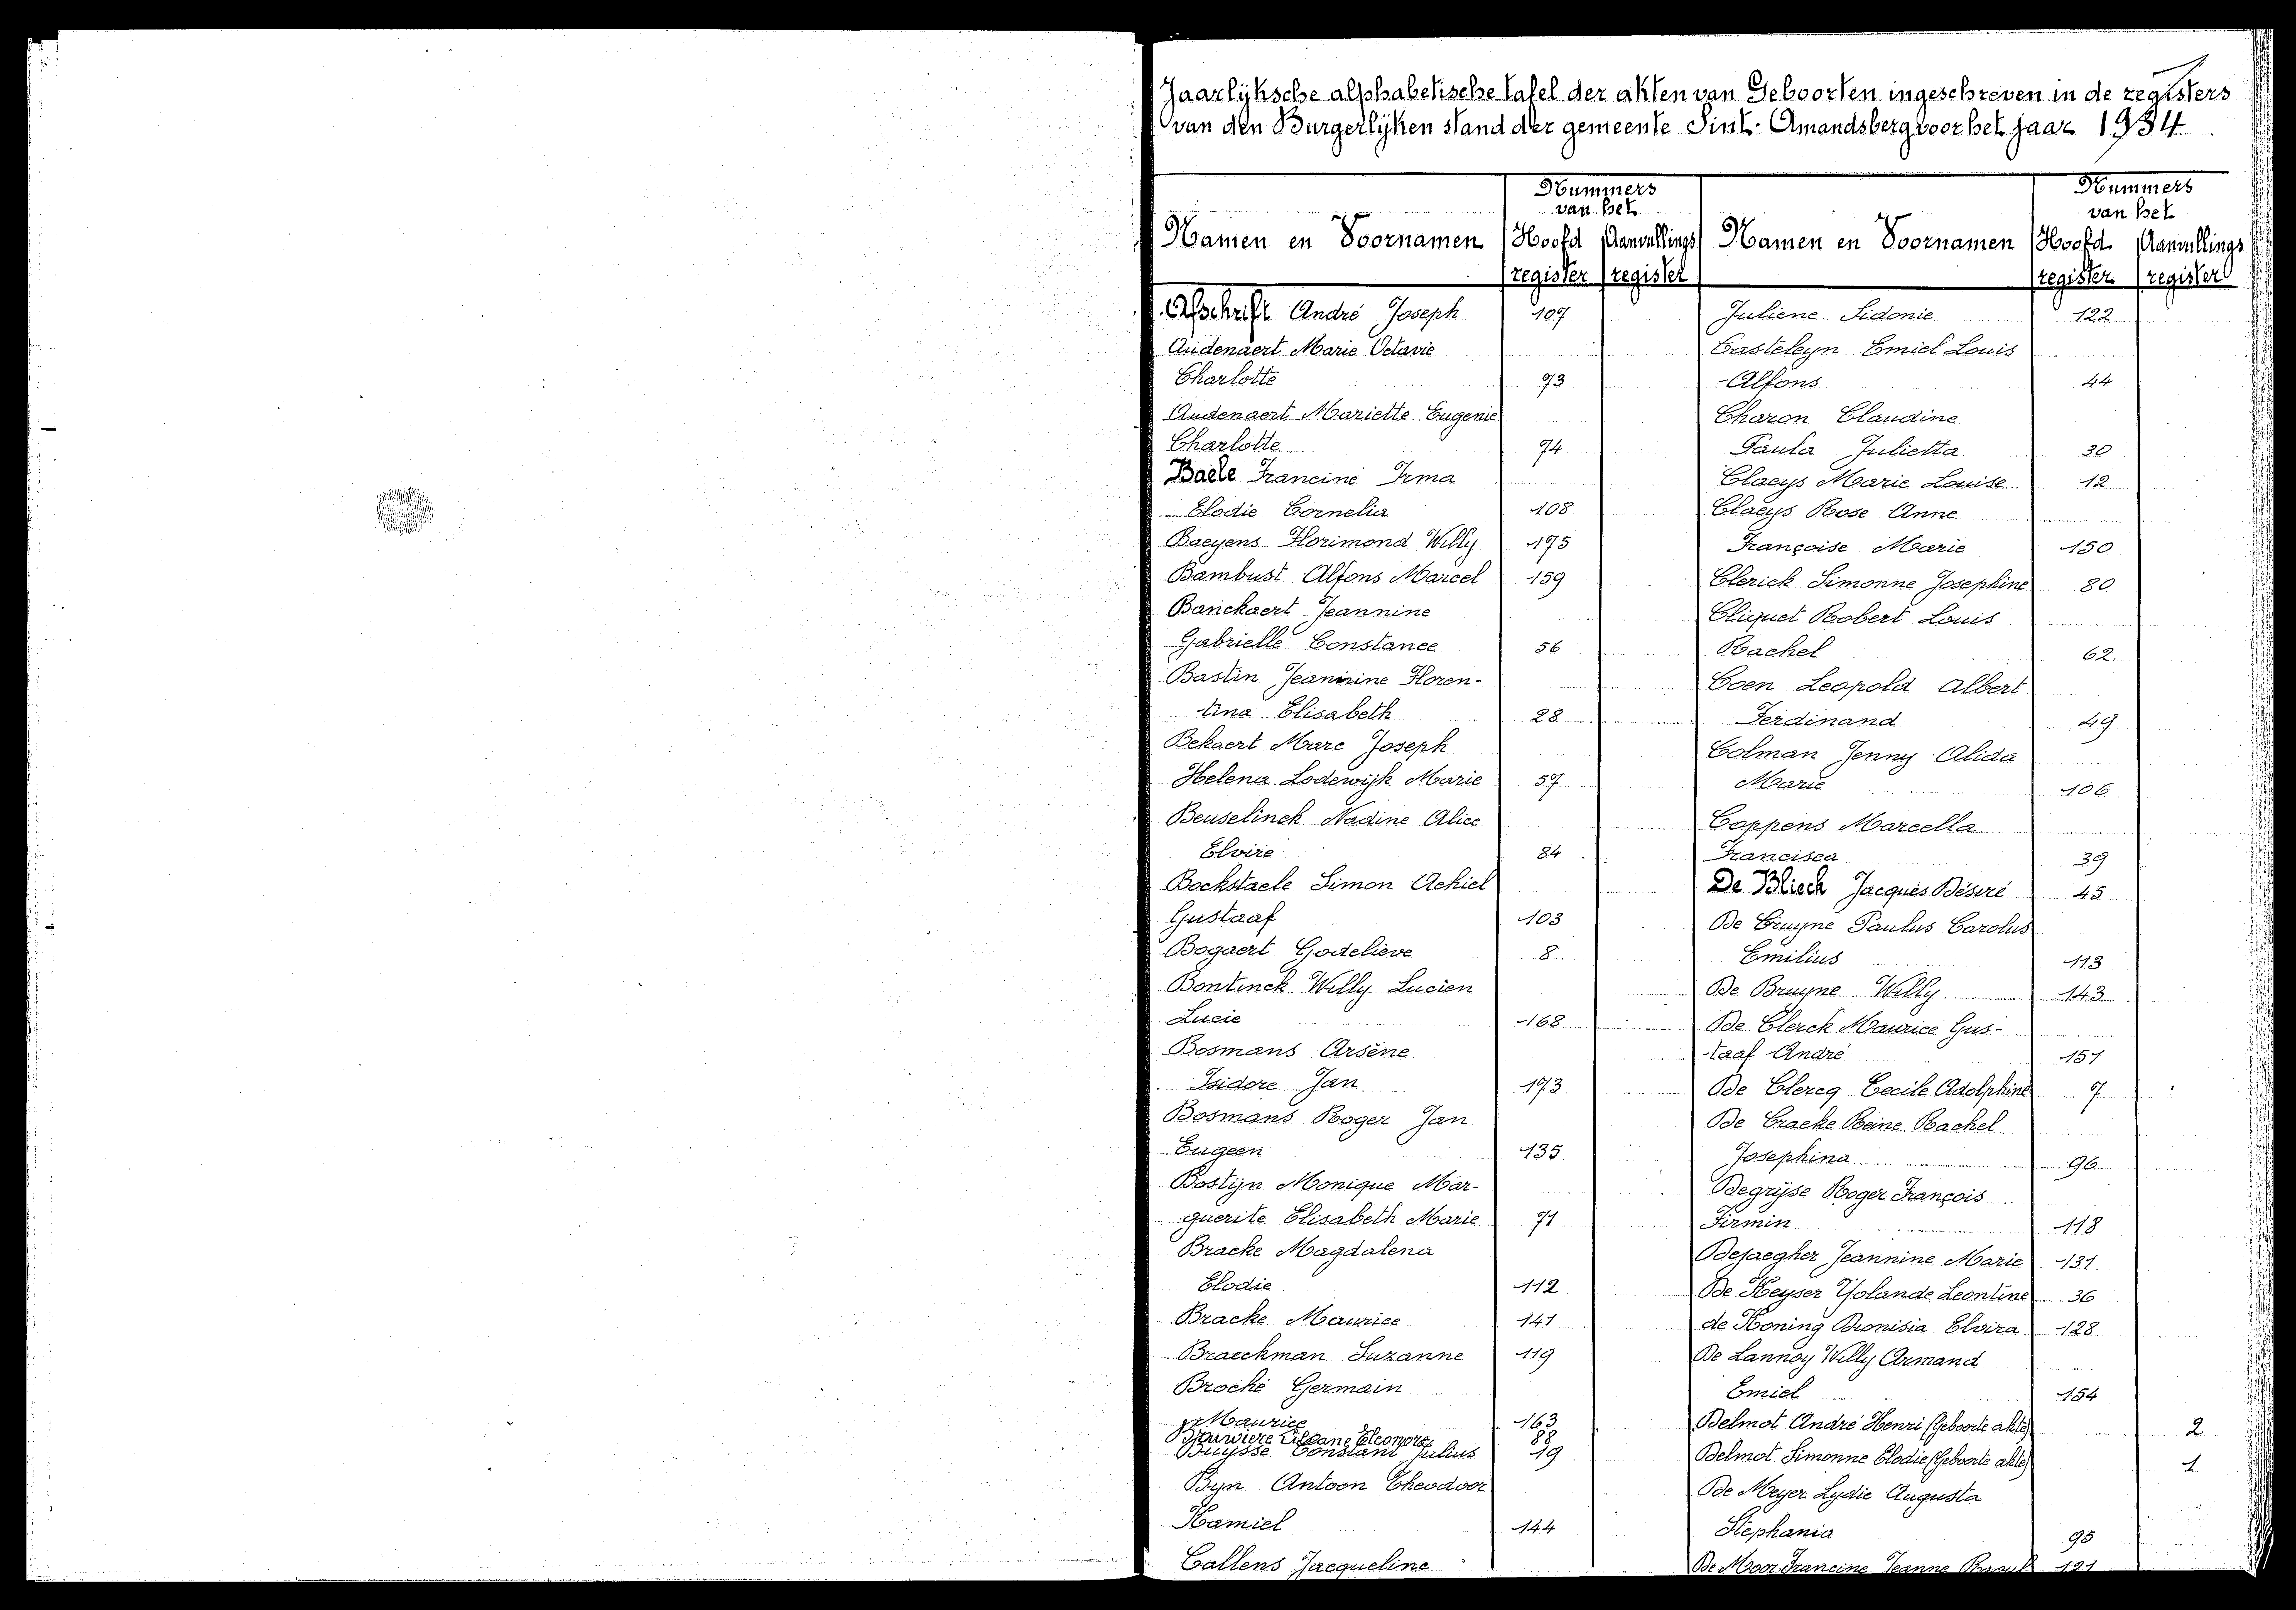 Jaarlijksche alphabetische tafel der akten van Geboorten ingeschreven in de registers
van den Burgerlijken stand der gemeente Sint-Amandsberg voor het jaar 1934
Nummers
van het
Namen en Voornamen Hoofd register Aanvullings register
Afschrift André Joseph 107
Audenaert Marie Octavie
Charlotte 73
Audenaert Mariette Eugenie
Charlotte 74
Baele Francine Irma
Elodie Cornelia 108
Baeyens Florimond Willy 175
Bambust Alfons Marcel 159
Banckaert Jeannine
Gabrielle Constance 56
Bastin Jeannine Floren-
tina Elisabeth 28
Bekaert Marc Joseph
Helena Lodewijk Marie 57
Beuselinck Nadine Alice
Elvire 84
Bockstaele Simon Achiel
Gustaaf 103
Bogaert Godelieve 8
Bontinck Willy Lucien
Lucie 168
Bosmans Arsène
Isidore Jan 173
Bosmans Roger Jan
Eugeen 135
Bostijn Monique Mar-
guerite Elisabeth Marie 71
Bracke Magdalena
Elodie 112
Bracke Maurice 141
Braeckman Suzanne 119
Broché Germain
Maurice 163
Brouwiere Liliane Eleonore 88
Buysse Constant Julius 19
Byn Antoon Theodoor
Kamiel 144
Callens Jacqueline
Nummers
van het
Namen en Voornamen Hoofd register Aanvullings register
Juliene Sidonie 122
Casteleyn Emiel Louis
Alfons 44
Charon Claudine
Paula Julietta 30
Claeys Marie Louise 12
Claeys Rose Anne
Françoise Marie 150
Clerick Simonne Josephine 80
Cliquet Robert Louis
Rachel 62.
Coen Leopold Albert
Ferdinand 49
Colman Jenny Alida
Marie 106
Coppens Marcella
Francisca 39
De Blieck Jacques Désiré 45
De Bruyne Paulus Carolus
Emilius 113
De Bruyne Willy 143
De Clerck Maurice Gus-
taaf André 151
De Clercq Cecile Adolphine 7
De Craeke Reine Rachel
Josephina 96
Degrijse Roger François
Firmin 118
Dejaegher Jeannine Marie 131
De Keyser Yolande Leontine 36
de Koning Dionisia Elvira 128
De Lannoy Willy Armand
Emiel 154
Delmot André Henri (Geboorte akte) 2
Delmot Simonne Elodie (Geboorte akte) 1
De Meyer Lydie Augusta
Stephania 95
De Moor Francine Jeanne 121